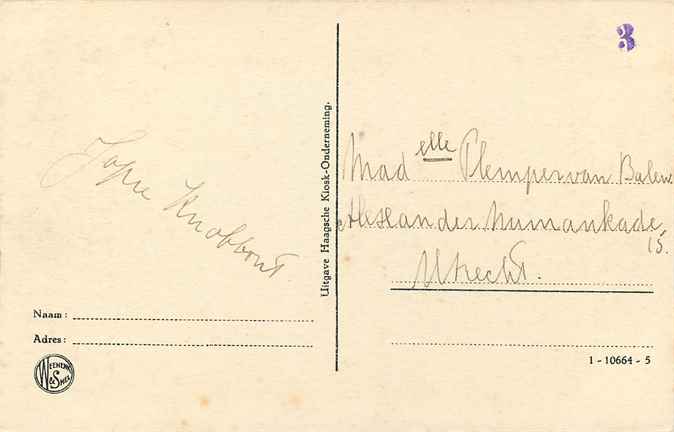 3
Jopie Knobbout
Uitgave Haagsche Kiosk-Onderneming.
Mad elle Plemper van Balen
Alexander Numankade
15.
Utrecht.
Naam:
Adres:
WEENENK & SNEL
1 - 10664 - 5